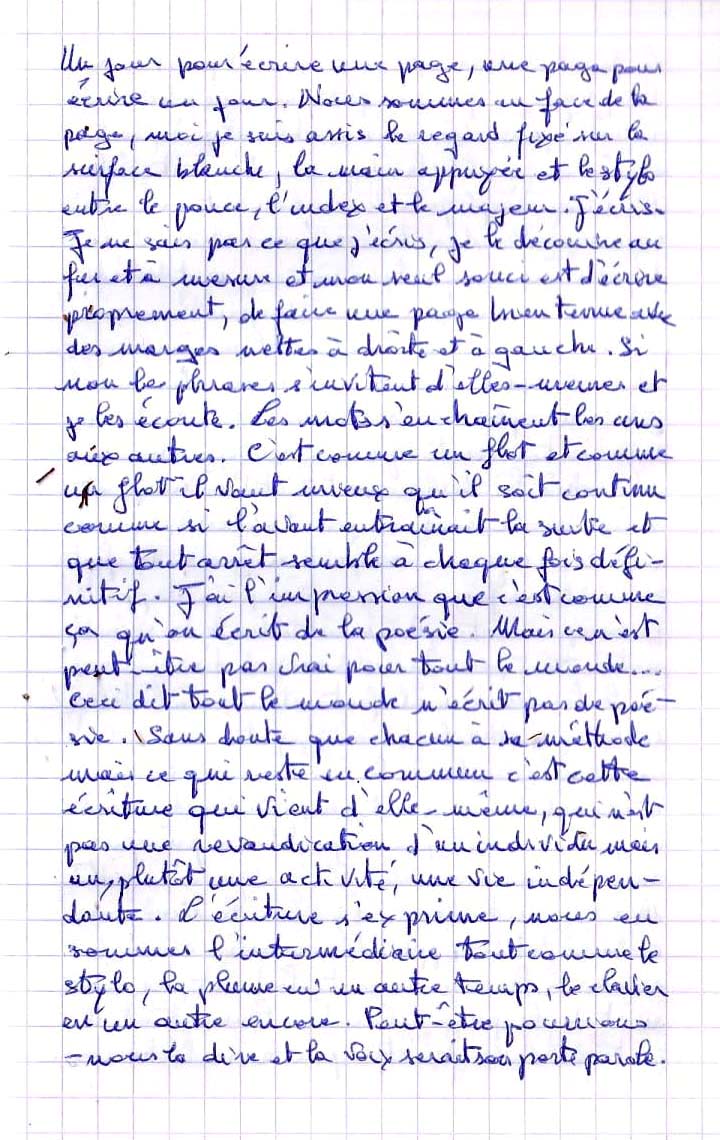 Un jour pour écrire une page, une page pour
écrire un jour. Nous sommes en face de la
page, moi je suis assis le regard fixé sur la
surface blanche, la main appuyée et le stylo
entre le pouce, l'index et le majeur. J'écris.
Je ne sais pas ce que j'écris, je le découvre au
fur et à mesure et mon seul souci est d'écrire
proprement, de faire une page bien tenue avec
des marges nettes à droite et à gauche. Si
non les phrases s'invitent d'elles-memes et
je les écoute. Les mots s'enchaînent les uns
aux autres. C'est comme un flot et comme
un flot il vaut mieux qu'il soit continu
comme si l'avant entraînait la suite et
que tout arrêt semble à chaque fois défi-
nitif. J'ai l'impression que c'est comme
ça qu'on écrit de la poésie. Mais ce n'est
peut-être pas vrai pour tout le monde...
Ceci dit tout le monde n'écrit pas de poé-
sie. Sans doute que chacun à sa méthode
mais ce qui reste en commun c'est cette
écriture qui vient d'elle-même, qui n'est
pas une revendication d'un individu mais
un, plutôt une activité, une vie indépen-
dante. L'écriture s'exprime, nous en
sommes l'intermédiaire tout comme le
stylo, la plume en un autre temps, le clavier
en un autre encore. Peut-être pourrions
-nous la dire et la voix serait son porte parole.